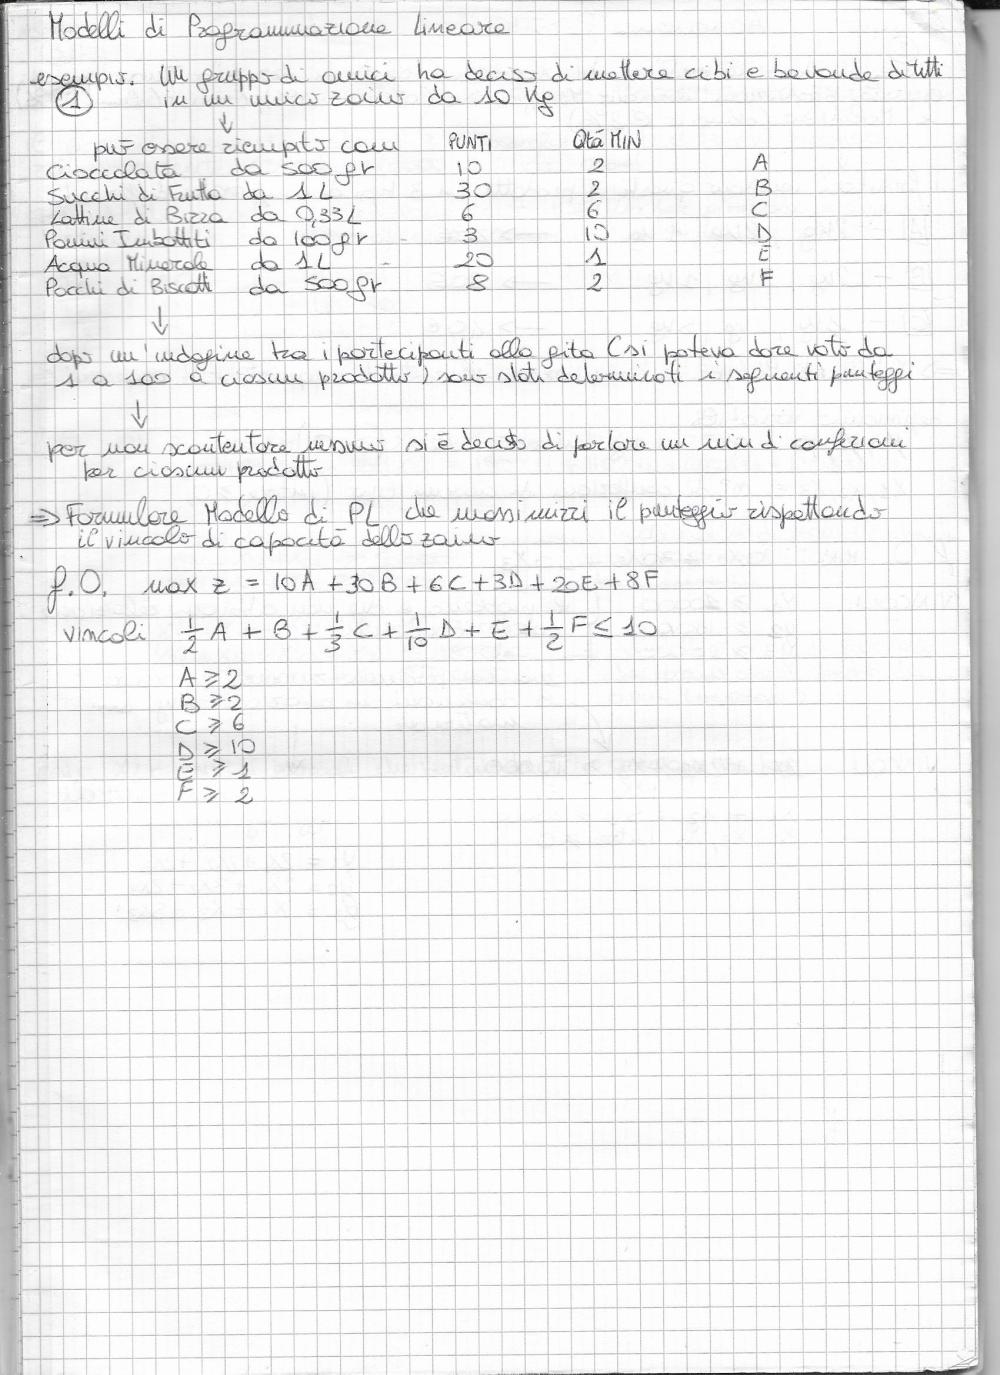 Modelli di Programmazione Lineare
esempio. Un gruppo di amici ha deciso di mettere cibi e bevande di tutti
1 in un unico zaino da 10 Kg
↓
può essere riempito com PUNTI Qtà MIN
Cioccolata da 500 gr 10 2 A
Succhi di Frutta da 1 L 30 2 B
Lattine di Birra da 0,33 L 6 6 C
Panini Imbottiti da 100 gr 3 10 D
Acqua Minerale da 1 L 20 1 E
Pacchi di Biscotti da 500 gr 8 2 F
↓
dopo un'indagine tra i partecipanti alla gita (si poteva dare voto da
1 a 100 a ciascun prodotto) sono stati determinati i seguenti punteggi
↓
per non scontentare nessuno si è deciso di portare un min di confezioni
per ciascun prodotto
⇒ Formulare Modello di PL che massimizzi il punteggio rispettando
il vincolo di capacità dello zaino
f.O. max z = 10A + 30B + 6C + 3D + 20E + 8F
vincoli 1/2 A + B + 1/3 C + 1/10 D + E + 1/2 F ≤ 10
A ≥ 2
B ≥ 2
C ≥ 6
D ≥ 10
E ≥ 1
F ≥ 2